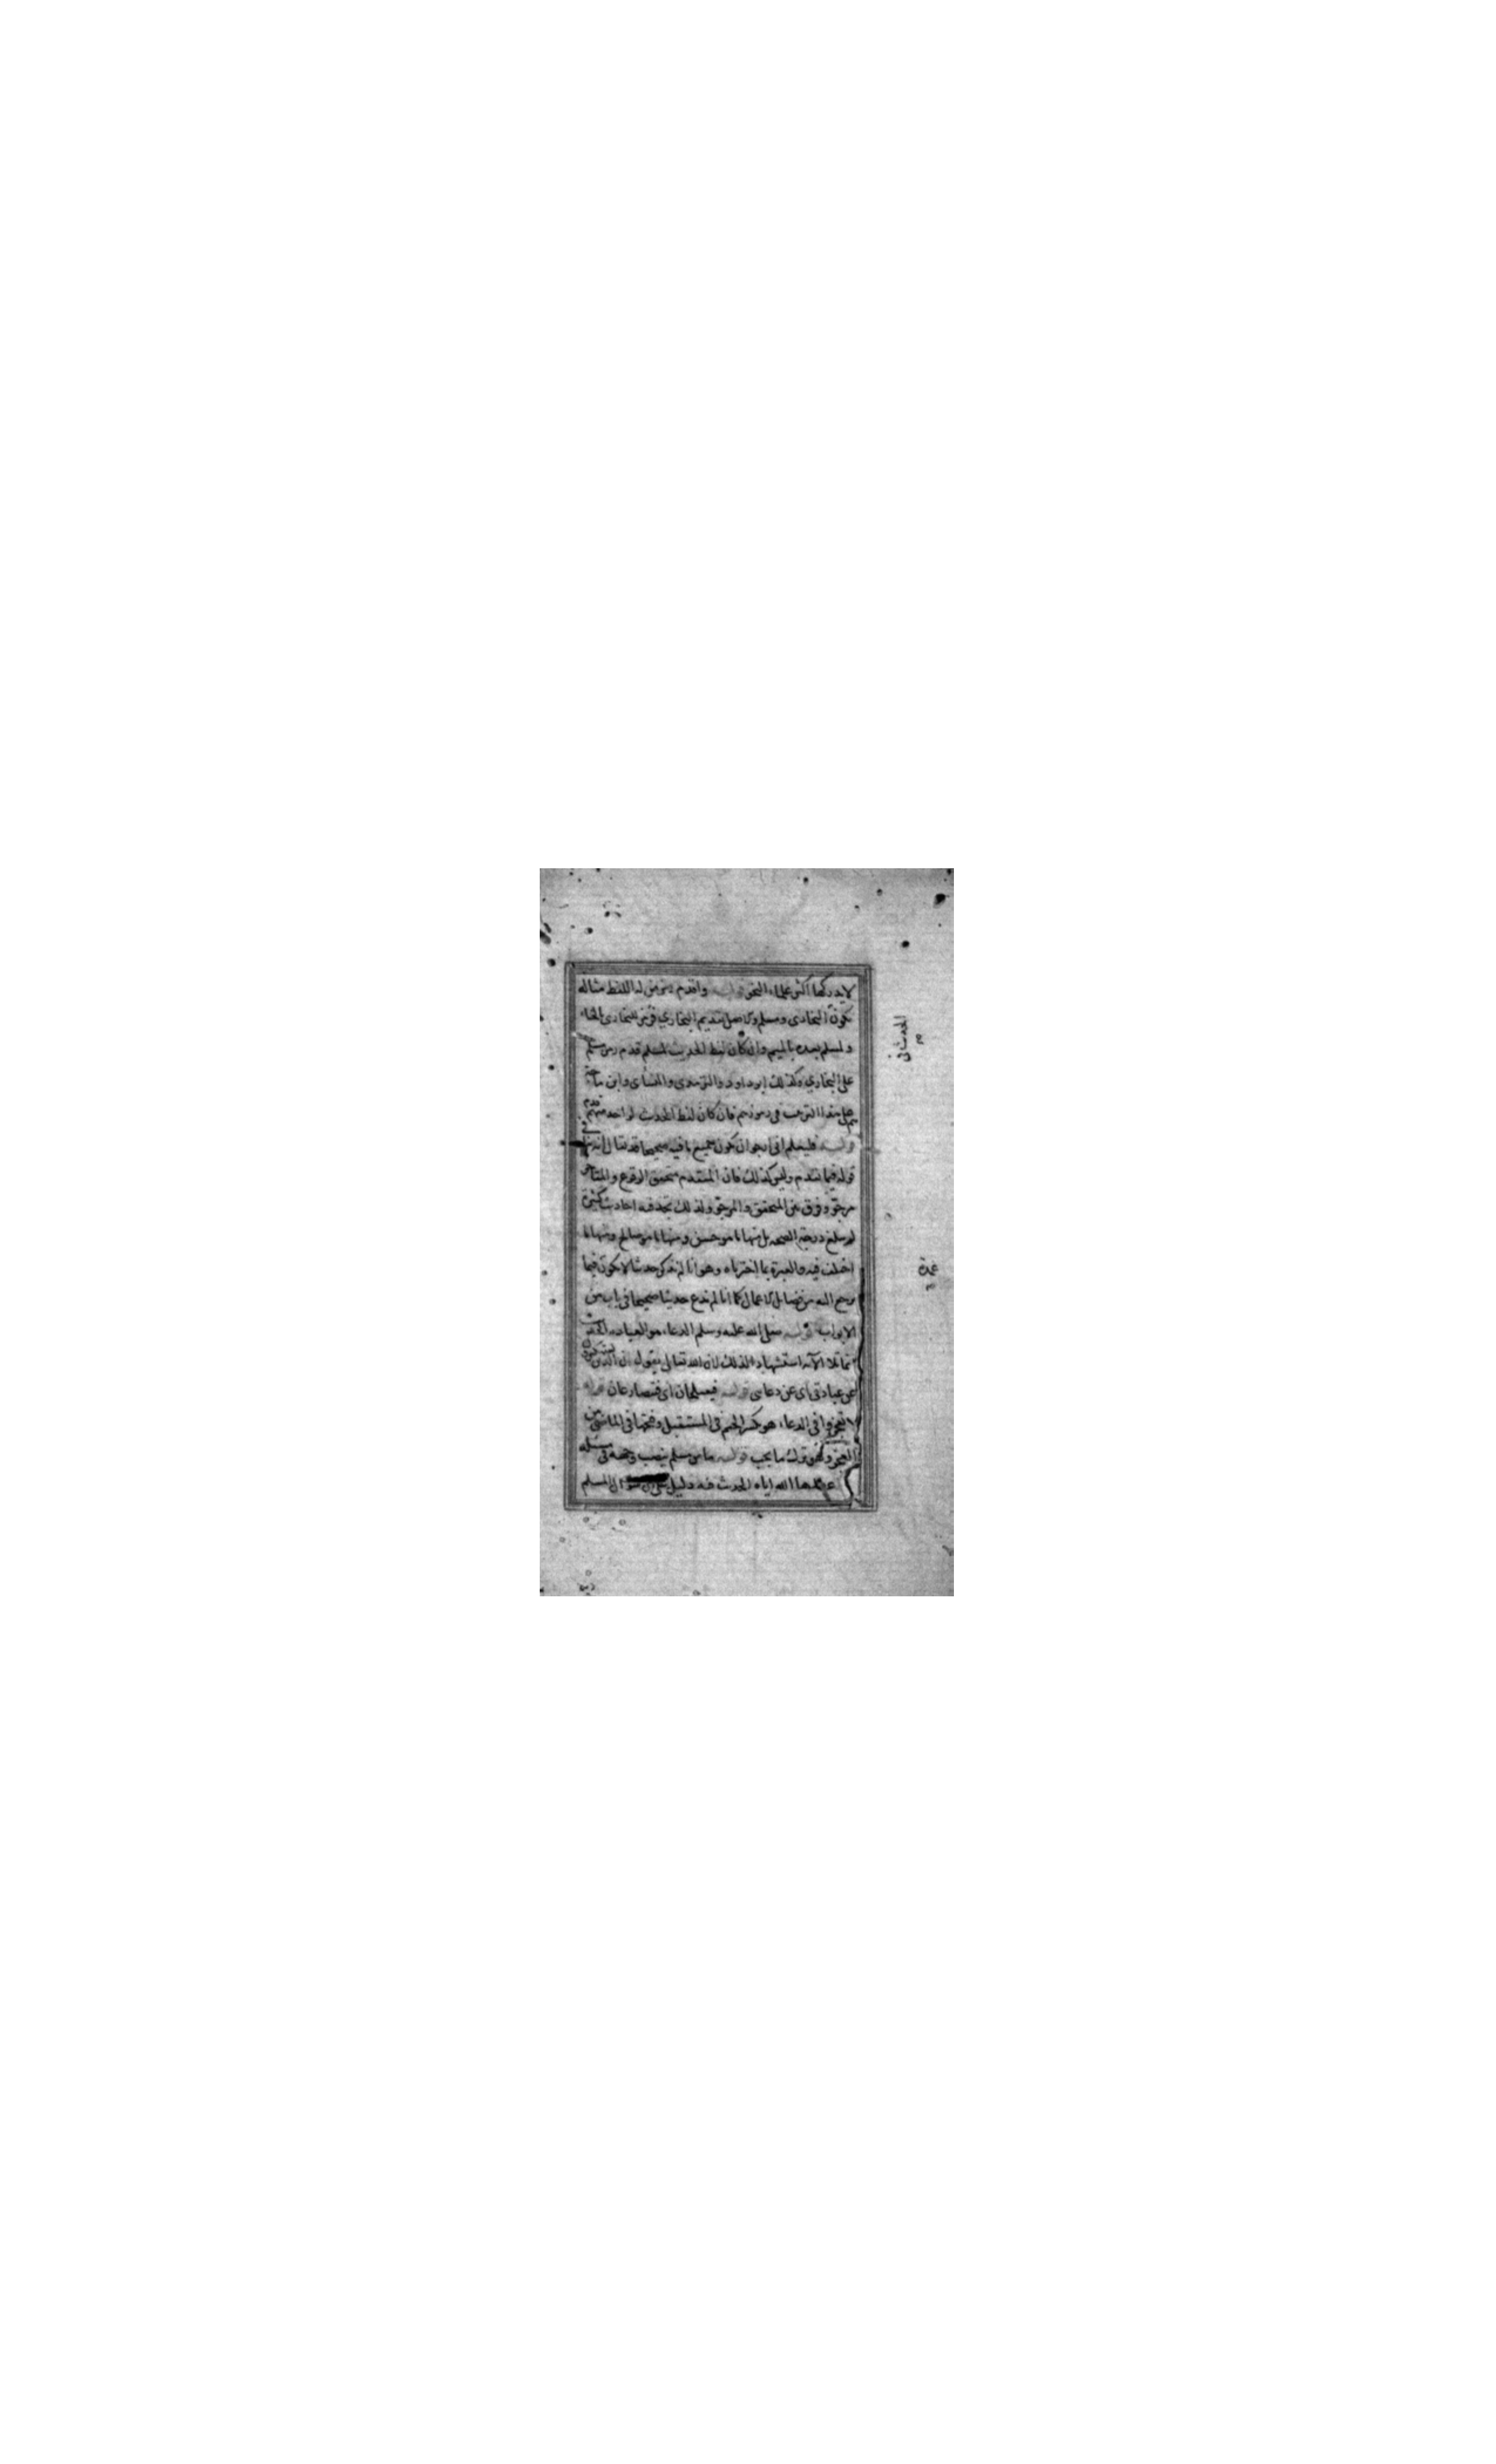 لايدركها اكثر علماء النحو قوله واقدم رمز من له اللفظ مثاله
يكون البخاري ومسلم والاصل تقديم البخاري فرمز للبخاري بالخاء
ولمسلم بعده بالميم وان كان لفظ الحديث لمسلم قدم رمز مسلم
على البخاري وكذلك ابو داود والترمذي والنسائ وابن ماجة
على هذا الترتيب في رموزهم فان كان لفظ الحديث لواحد منهم قدم
قوله فليعلم اني ارجو ان يكون جميع ما فيه صحيحا قد يقال انه
قوله فيما تقدم وليس كذلك فان المتقدم متحقق الوقوع والمتاخر
مرجو وفرق بين المتحقق والمرجو ولذلك تجد فيه احاديث كثيرة
لم تبلغ درجة الصحة بل منها ما هو حسن ومنها ما هو صالح ومنها ما
اختلف فيه والعبرة بما اخترناه وهو انا لم نذكر حديثا لا يكون فيما
يرجع اليه من فضايل الاعمال كما انا لم ندع حديثا صحيحا في باب من
الابواب قوله صلى الله عليه وسلم الدعاء هو العبادة الحديث
تلا الآية استشهادا لذلك لان الله تعالى يقول ان الذين يستكبرون
عن عبادتي اى عن دعاى قوله
تعجزوا في الدعاء هو بكسر الجيم في المستقبل وفتحها في الماضي من
العجز قوله ما من مسلم ينصب وجهه في مسئلة
الله اياه الحديث فيه دليل على ان سوال المسلم
عمدة